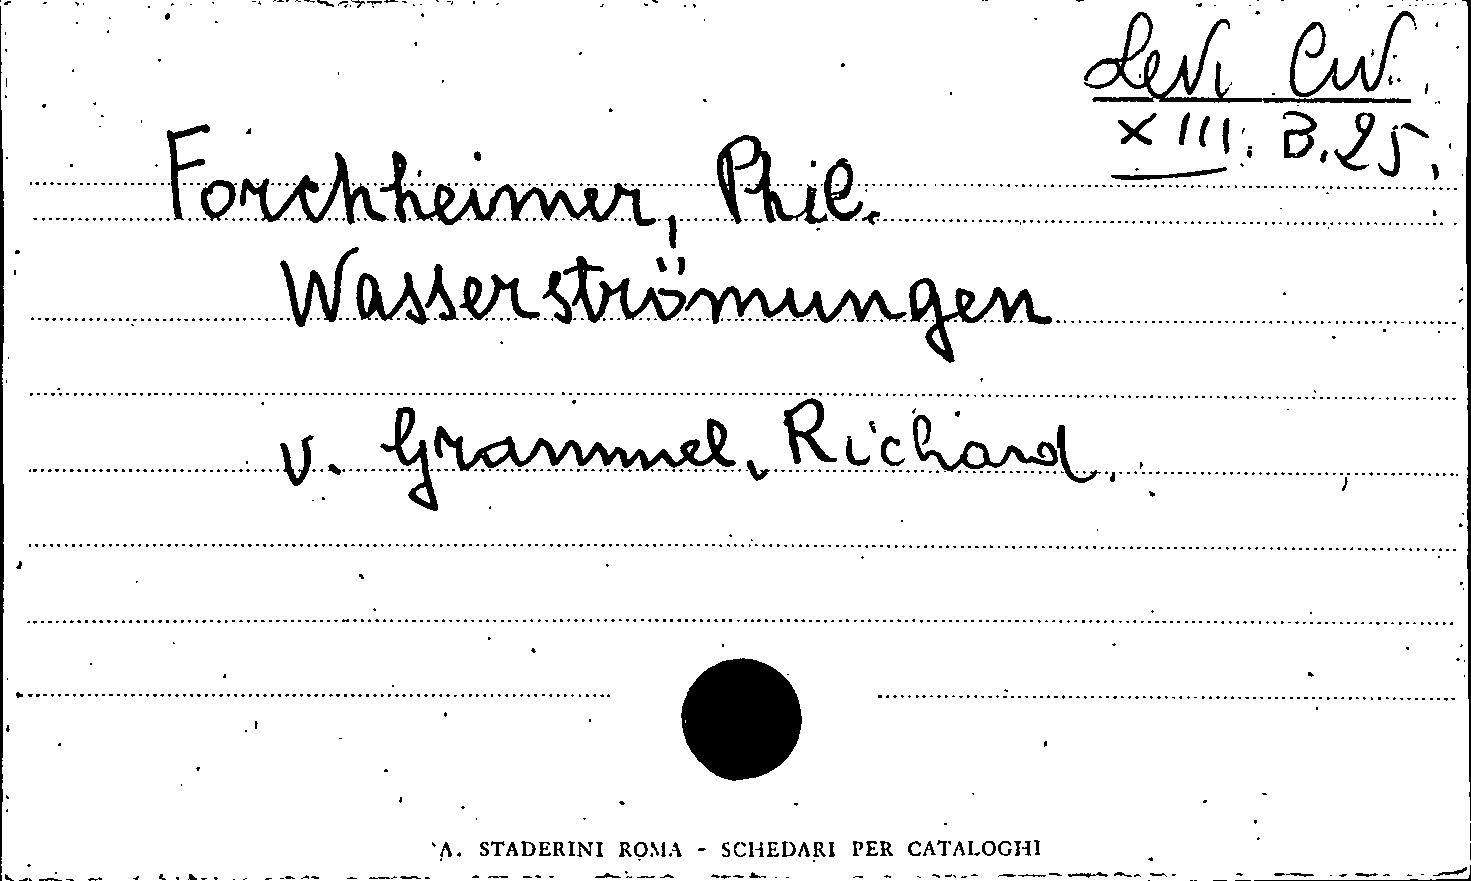 Levi Civ.
XIII. B. 25.
Forchheimer, Phil.
Wasserströmungen
v. Grammel, Richard.
A. STADERINI ROMA - SCHEDARI PER CATALOGHI